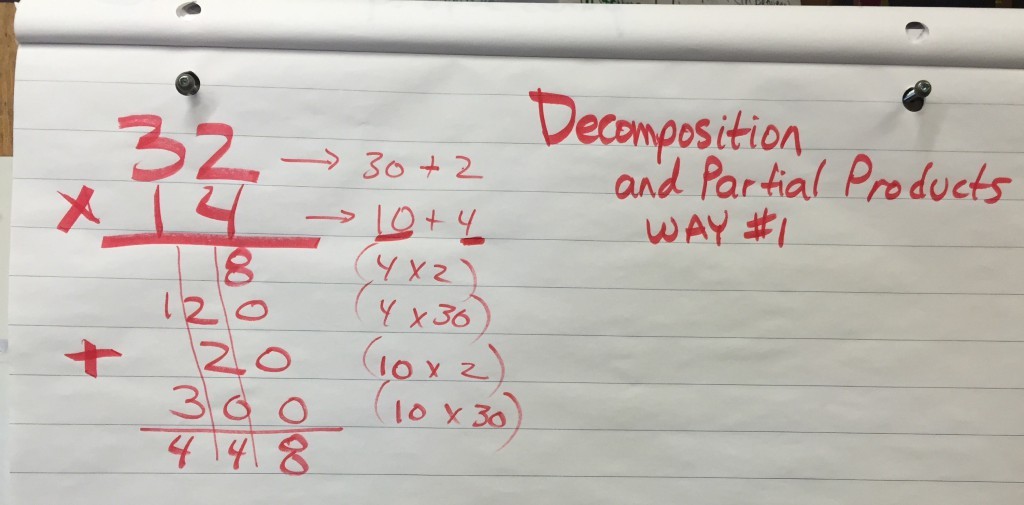 32 → 30 + 2
x 14 → 10 + 4
8 (4 x 2)
120 (4 x 30)
+ 20 (10 x 2)
300 (10 x 30)
448
Decomposition
and Partial Products
WAY #1